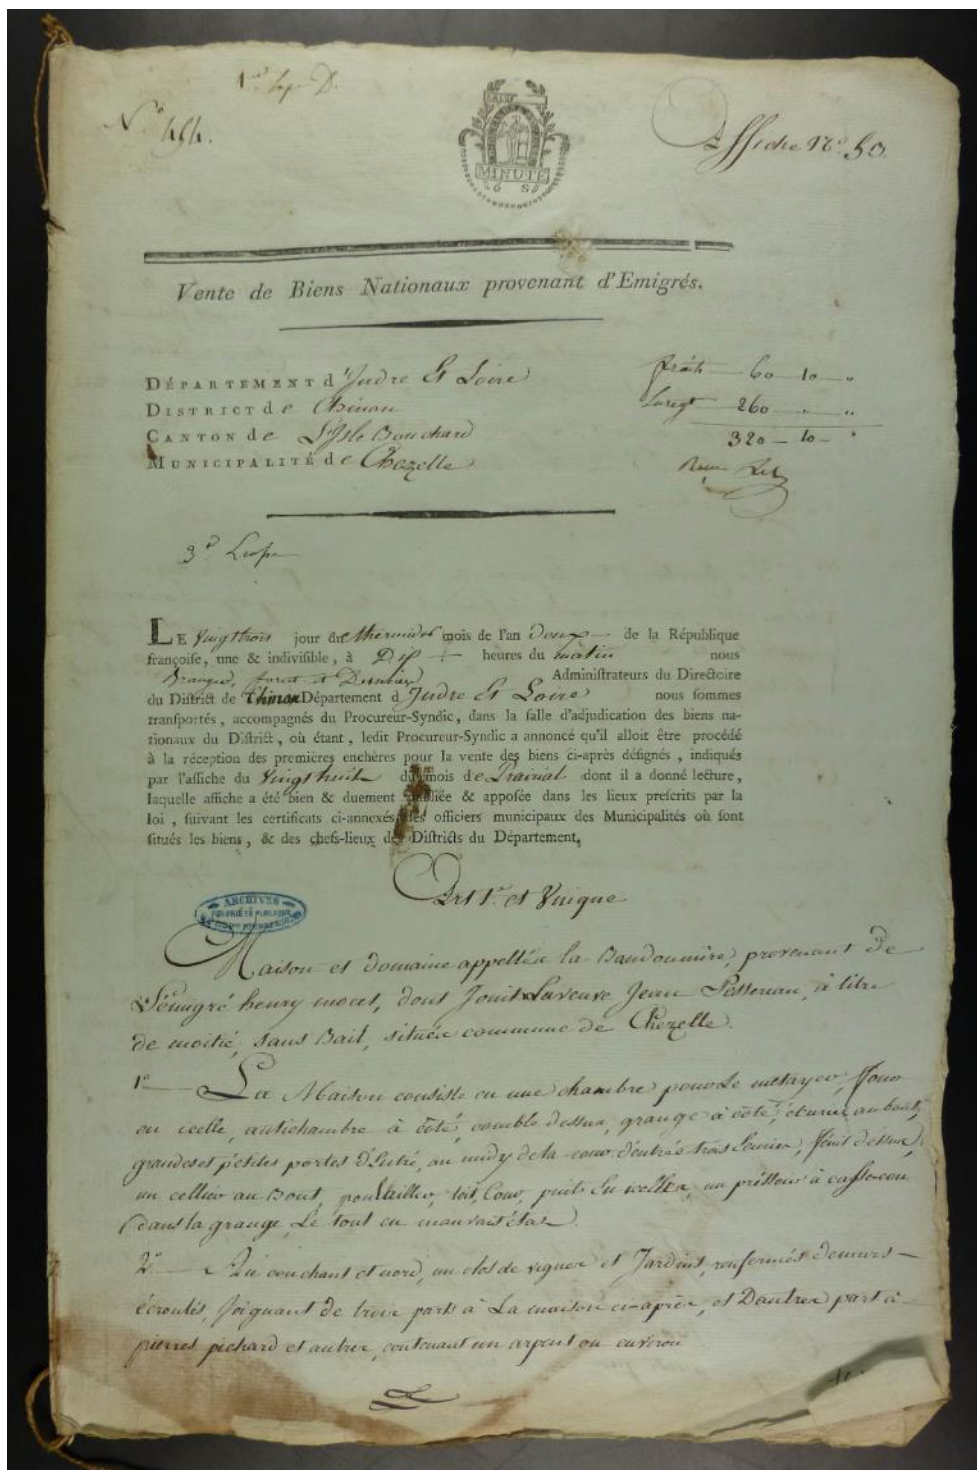 N.° 454.
Affiche N.° 50.
MINUTE
6 S
Vente de Biens Nationaux provenant d'Emigrés.
DÉPARTEMENT d'Indre Et Loire
DISTRICT de Chinon
CANTON de L'Isle Bouchard
MUNICIPALITÉ de Chezelle
frais 60 - 10 - "
260 - " - "
320 - 10 - "
LE Vingt trois jour du thermidor mois de l'an deux de la République
françoise, une & indivisible, à Dix heures du matin nous
Administrateurs du Directoire
du District de Chinon Département d'Indre Et Loire nous sommes
transportés, accompagnés du Procureur-Syndic, dans la salle d'adjudication des biens na-
tionaux du District, où étant, ledit Procureur-Syndic a annoncé qu'il alloit être procédé
à la réception des premières enchères pour la vente des biens ci-après désignés, indiqués
par l'affiche du Vingt huit du mois de Prairial dont il a donné lecture,
laquelle affiche a été bien & duement publiée & apposée dans les lieux prescrits par la
loi, suivant les certificats ci-annexés des officiers municipaux des Municipalités où sont
situés les biens, & des chefs-lieux des Districts du Département,
Art 1.er et Unique
ARCHIVES
PROPRIÉTÉ PUBLIQUE
Maison et domaine appellée la Baudouinière, provenant de
L'émigré henry mocet, dont Jouit La veuve Jean, à titre
de moitié, sans Bail, située commune de Chezelle.
1.° La Maison consiste en une chambre pour le metayer, four
en icelle, antichambre à côté, comble dessus, grange à côté, écurie au bout,
grandes et petites portes d'Entrée, au midy de la cour d'entrée trois écuries, fenil dessus,
un cellier au Bout, poulailler, toit, Cour, puits En icelle, un préssoir à casse-cou
dans la grange, Le tout en mauvais état.
2.° Au couchant et nord, un clos de vignes et Jardins, renfermés de murs
écroulés, Joignant de trois parts à La maison ci-après, et D'autres part à
pierres pichard et autres, contenant un arpent ou environ